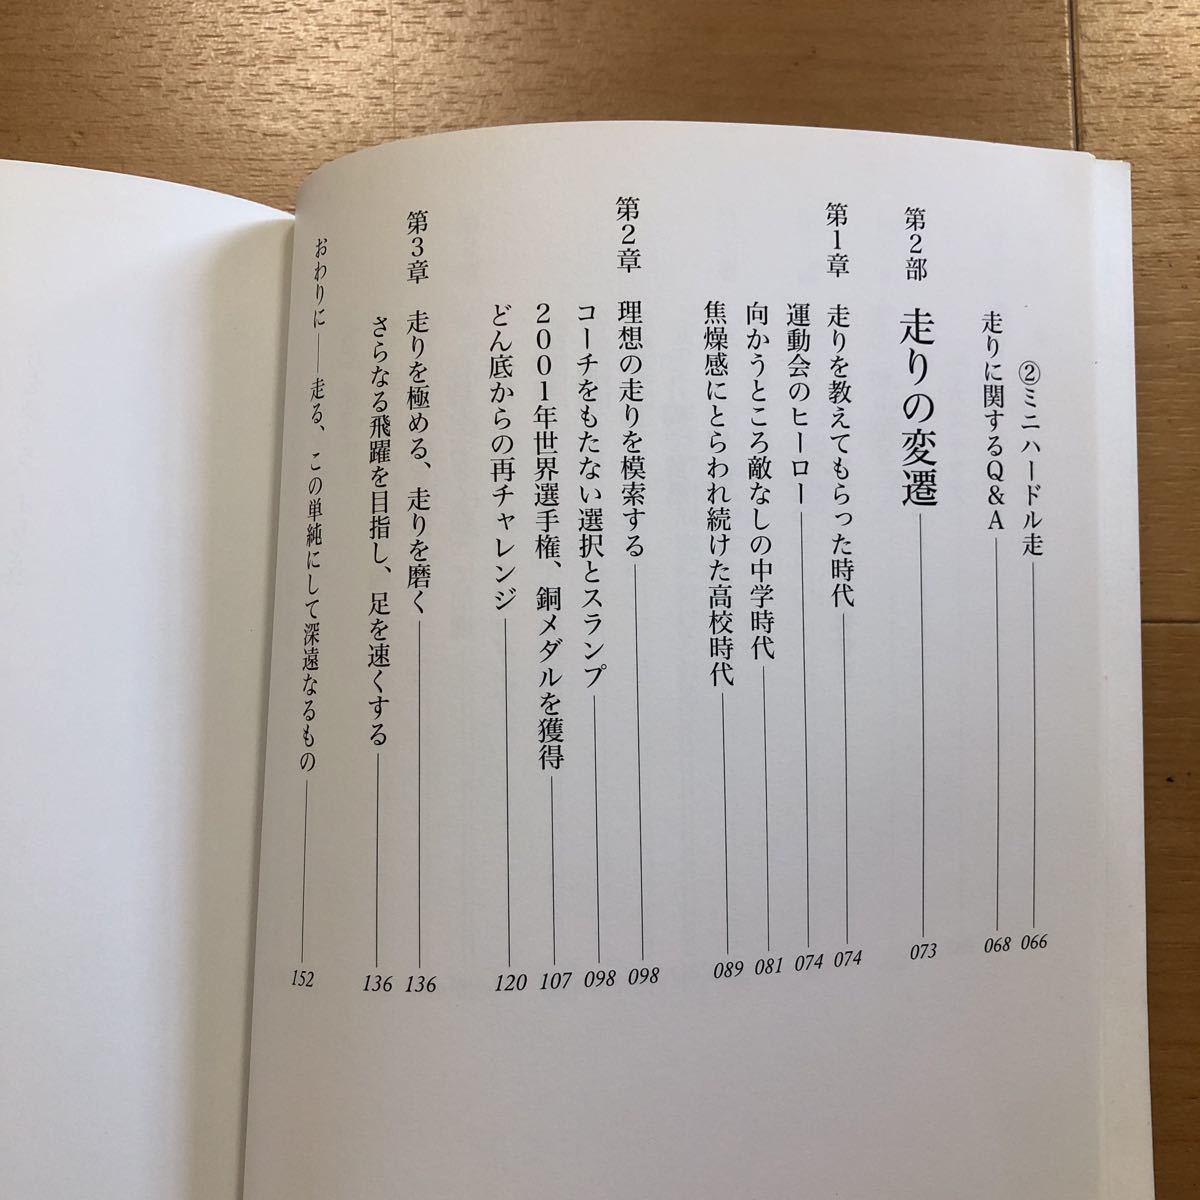 ②ミニハードル走 066
走りに関するQ&A 068
第2部 走りの変遷 073
第1章 走りを教えてもらった時代 074
運動会のヒーロー 074
向かうところ敵なしの中学時代 081
焦燥感にとらわれ続けた高校時代 089
第2章 理想の走りを模索する 098
コーチをもたない選択とスランプ 098
2001年世界選手権、銅メダルを獲得 107
どん底からの再チャレンジ 120
第3章 走りを極める、走りを磨く 136
さらなる飛躍を目指し、足を速くする 136
おわりに——走る、この単純にして深遠なるもの 152